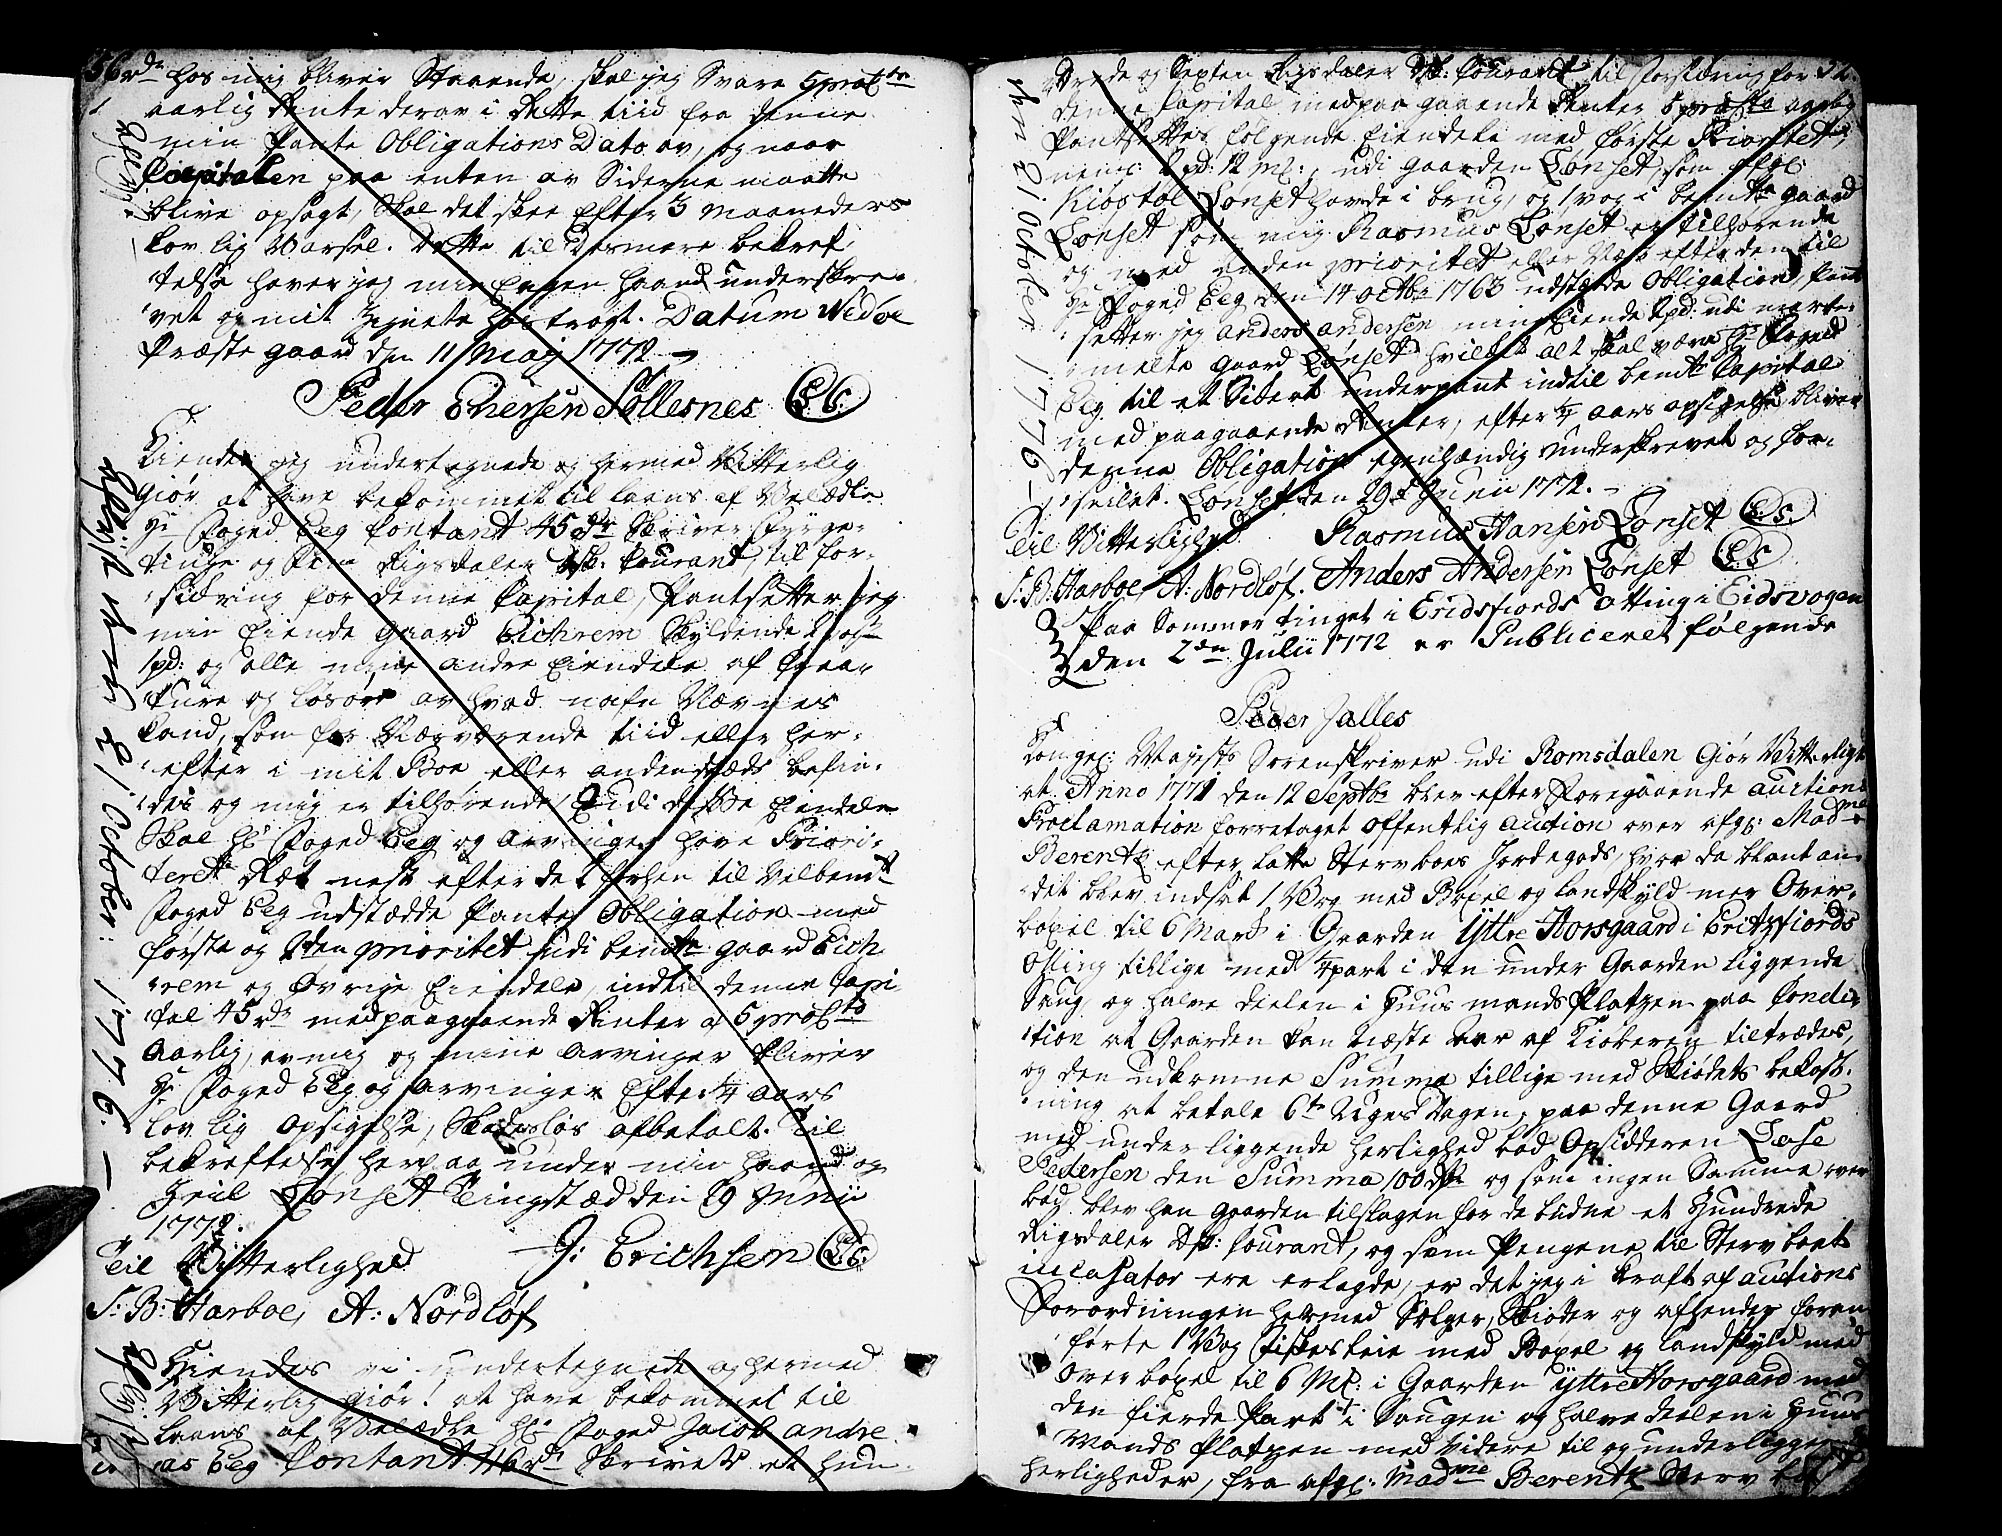 56 rdr hos mig bliver Staaende, skal jeg Svare 5 proCto
aarlig Rente derav i Rette tiid fra denne
min Pante Obligations Dato av, og naar
Capitalen paa enten av Siderne maatte
blive opsagt, skal det skee Efter 3 Maaneders
lovlig Varsel. Dette til desmere bekref-
telse haver jeg min Egen haand underskre-
vet og mit Zignete hoströgt. Datum Nedøe
Præste gaard den 11 May 1772
Peder Ehersen Sollesnes (LS)
Kiendes jeg undertegnede og hermed Vitterlig
Giør at have bekommet til laans af Velædle
Hr Foged Eeg Contant 45 rdr Skriver Fyrge-
tiuge og Fem Rigsdaler dsk: Courant, til for-
sickring for denne Capital, Pantsetter jeg
min Eiende gaard Eichrem Skyldende 2 Vog
1 pd: og alle mine andre Eiendele af
og løsøre av hvad nafn Nævnes
kand, som for Nærværende tiid eller her-
efter i mit Boe eller andenstæds befin-
des og mig er tilhørende, Udi disse Eiendele
Skal Hr Foged Eeg og Arvinger have Priori-
teret Ræt nest efter det forhen til Velbemte
Foged Eeg udstædde Pante Obligation med
første og 2den prioritet udi bemte gaard Eich-
rem og Øvrige Eiendele, indtil denne Capi-
tal 45 rdr med paagaaende Renter a 5 proCto
Aarlig, av mig og mine Arvinger bliver
Hr Foged Eeg og Arvinger Efter 1/4 Aars
lovlig Opsigelse, Skadesløs afbetalt. Til
bekræftelse herpaa under min haand og
Zeil Lønset Tingstæd den 29 Junii
1772.
Til Vitterlighed J: Erichsen (LS)
S: B: Harboe, A: Nordløf
Kiendes vi undertegnede og hermed
Vitterlig giør! at have bekommet til
laans af Velædle Hr Foged Jacob Andre-
as Eeg Contant 116 rdr Skriver et hun-
Aflyst den 21 October: 1776.
drede og Sexten Rigsdaler dsk: Courant til forsickring for
denne Capital med paagaaende Renter 5 procto aarlig
Pantsettes følgende Eiendele med første Prioritet,
nemm: 2 pd: 12 Mk:, udi gaarden Lønset, som afgl:
Kiøstol Lønset havde i brug, og 1 vog i bemte gaard
Lønset som mig Rasmus Lønset er tilhørende
og med anden prioritet eller Nest efter den til
Hr Foged Eeg den 14 Octbr 1763 udstædde Obligation, Pant-
setter jeg Anders Andersen min Eiende 2 pd: udi merbe-
melte gaard Lønset hvilket alt skal være Hr Foged
Eeg til et Sickert underpant indtil bemte Capital
med paagaaende Renter, efter 1/4 aars opsigelse bliver
denne Obligation egenhændig underskrevet og for-
seilet. Lønset den 29de Junii 1772.
Til Vitterlighed Rasmus Hansen Lønset (LS)
S: B: Harboe, A: Nordløf. Anders Andersen Lønset (LS)
Paa Sommer tinget i Eridsfiords Otting i Eidsvogen
den 2den Julii 1772 er Publiceret følgende
Peder Salles
Kongel: Mayests Sorenskriver udi Romsdalen Giør Vitterligt
at Anno 1771 den 12 Septbr blev efter Foregaaende auctions
Proclamation forretaget offentlig auction over afg: Madme
Berentz efterlatte Stervboes Jordegods, hvor da blant an-
det blev indsat 1 Vog med Bøxel og landskyld mer Over-
bøxel til 6 Mark i Gaarden Yttre Horsgaard i Eritzfiords
Otting tillige med 1/4 part i den under Gaarden liggende
Saug og halve deelen i Huus mands Platzen paa Condi-
tion at Gaarden kan Næste Aar af Kiøberen tiltrædes,
og den udkomne Summa tillige med Skiødets bekost-
ning at betale 6te Uges Dagen, paa denne Gaard
med under liggende herlighed bød Opsidderen Lasse
Pedersen den Summa 100 rdr og som ingen Samme over
bød blev han Gaarden tilslagen for de budne et Hundrede
Rigsdaler Dsk: Courant, og som Pengene til Stervboets
incasator ere erlagde, er det jeg i kraft af auctions
Forordningen hermed Sælger, Skiøder og afhender foran-
førte 1 Vog Fiskesleie med Bøxel og landskyld med
Over bøxel til 6 Mk: i Gaarden Yttre Horsgaard med
den fierde Part i Saugen og halve deelen i Huus
Mands Platzen med Videre til og underliggende
herligheder, fra afg: Madme Berentz Sterv boe
den 21 October 1776